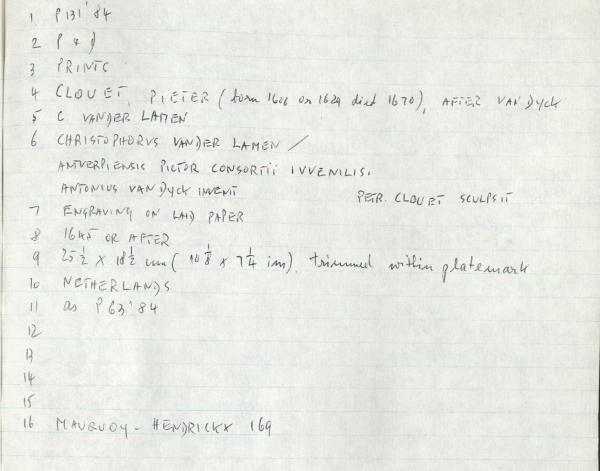 1 P131'84
2 P & D
3 PRINTS
4 CLOUET, PIETER (born 1606 or 1629 died 1670), AFTER VAN DYCK
5 C. VANDER LAMEN
6 CHRISTOPHORVS VANDER LAMEN /
ANTVERPIENSIS PICTOR CONSORTII IVVENILIS.
ANTONIUS VAN DYCK INVENT PETR. CLOUET SCULPSIT
7 ENGRAVING ON LAID PAPER
8 1645 OR AFTER
9 25 1/2 X 18 1/2 cm (10 1/8 x 7 1/4 ins), trimmed within platemark
10 NETHERLANDS
11 as P63'84
12
13
14
15
16 MAUQUOY - HENDRICKX 169